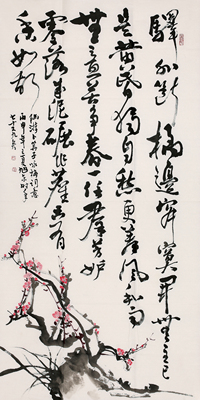 驛外斷橋邊寂寞開無主已
是黃昏獨自愁更著風和雨
無意苦爭春一任羣芳妒
零落成泥碾作塵只有
香如故
卜算子咏梅詞
丙申年